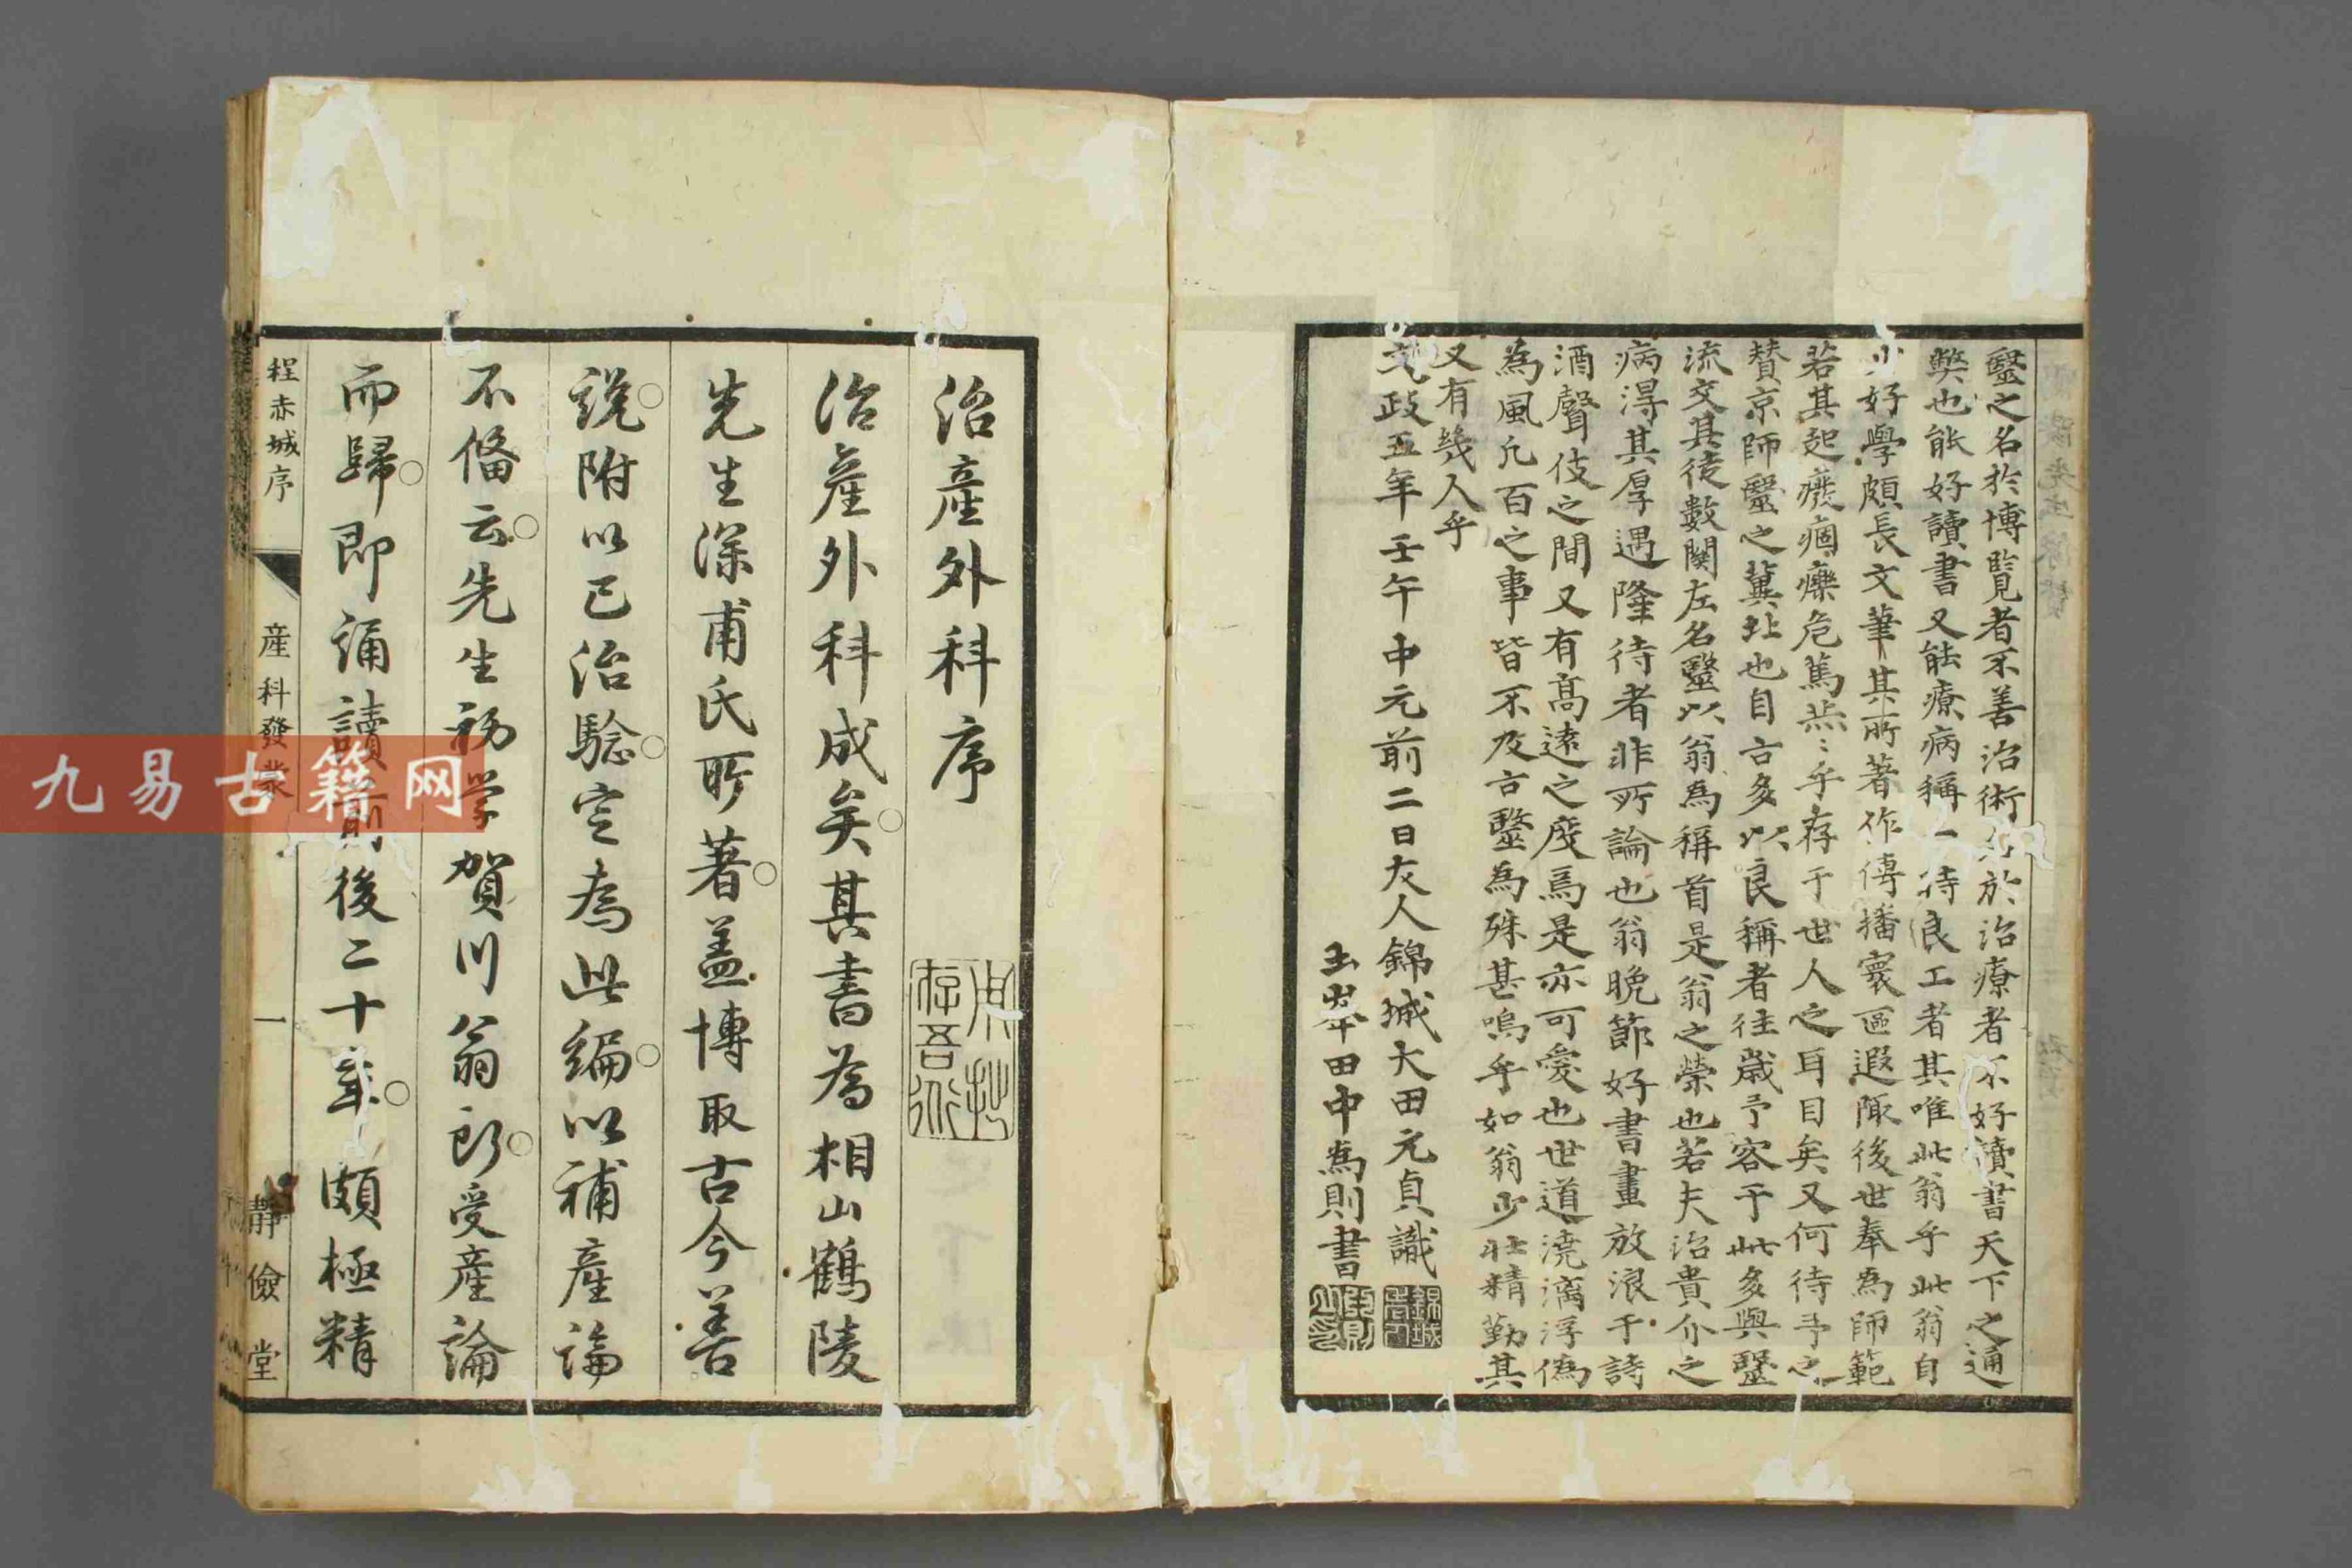 毉之名於博覧者不善治術名於治療者不好讀書天下之通
弊也能好讀書又能療病稱一待良工者其唯此翁乎此翁自
少好學頗長文筆其所著作傳播寰區遐陬後世奉為師範
若其起癈痼癴危篤赫々乎存于世人之耳目矣又何待予之
賛京師毉之冀北也自古多以良稱者往歲予容于此多與毉
流交其徒數関左名毉以翁為稱首是翁之榮也若夫治貴介之
病得其厚遇隆待者非所論也翁晚節好書畫放浪于詩
酒聲伎之間又有高遠之度焉是亦可愛也世道澆漓浮偽
為風凡百之事皆不及古毉為殊甚嗚乎如翁少壯精勤其
又有幾人乎
文政五年壬午中元前二日友人錦城大田元貞識
玉峯田中為則書
治產外科序
治產外科成矣其書為相山鶴陵
先生深甫氏所著盖博取古今善
說附以已治驗定為此編以補產論
不俻云先生初学賀川翁所受產論
而歸即誦讀前後二十年頗極精
程赤城序
產科發蒙
一
靜儉堂
九易古籍网